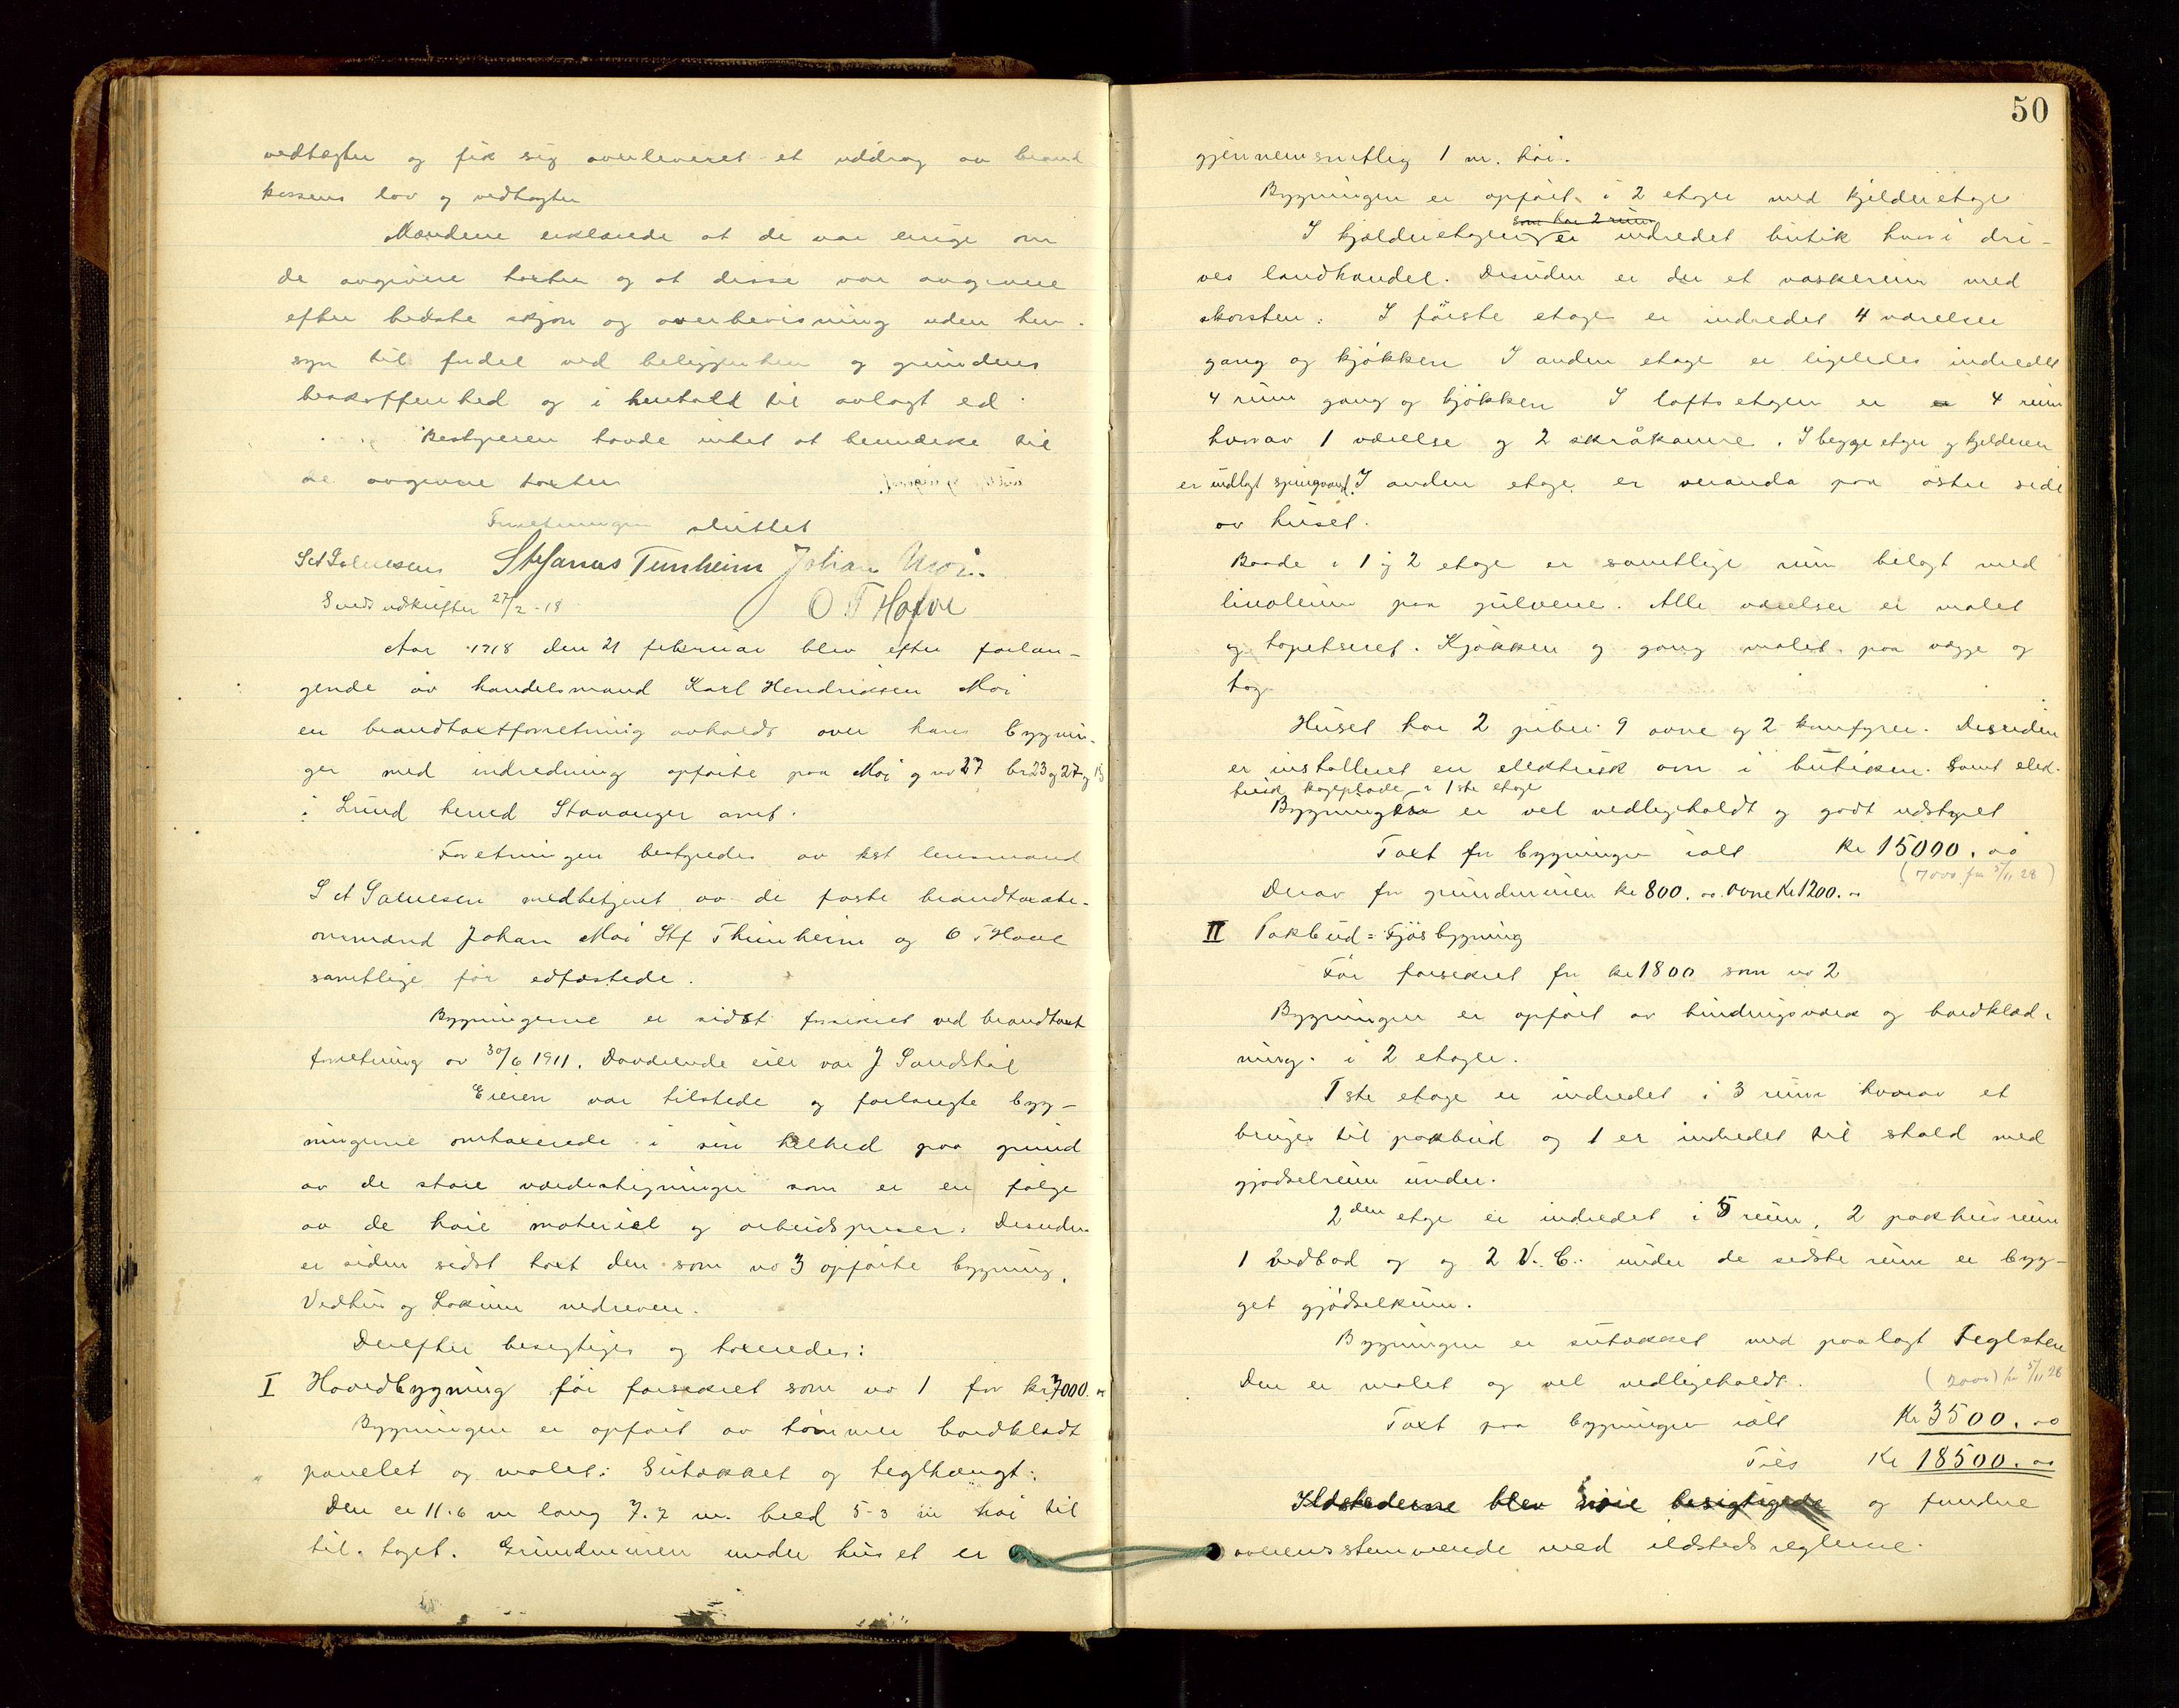 vedtægter og fik sig overleveret et uddrag av brand
kassens lov og vedtægter
Mændene erklærede at de var enige om
de avgivne takster og at disse var avgivne
efter bedste skjøn og overbevisning uden hen-
syn til fordel ved beliggenhen og grundens
beskaffenhed og i henhold til avlagt ed.
Bestyreren havde intet at bemærke til
de avgivne takster
Forretningen sluttet
S A Salvesen Stefanus Tunheim Johan Moi.
Svends udskrifter 27/2-18 O T Hofve
Aar 1918 den 21 februar blev efter forlan-
gende av handelsmand Karl Hendriksen Moi
en brandtaxtforretning avholdt over hans bygnin-
ger med indredning opførte paa Moi g no 27 br 23 og 27 og 13
i Lund herred Stavanger amt.
Forretningen bestyredes av kst lensmand
S A Salvesen medbetjent av de faste brandtakst-
ommænd Johan Moi Stf Thunheim og O T Hove
samtlige før edfæstede.
Bygningerne er sidst forsikret ved brandtaxt
forretning av 30/6 1911. Daværende eier var J Sandstøl
Eieren var tilstede og forlangte byg-
ningerne omtaxerede i sin helhed paa grund
av de store værdistigninger som er en følge
av de høie material og arbeidspriser. Desuden
er siden sidst taxt den som no 3 opførte bygning,
Vedhus og Lokum nedreven.
Derefter besigtiges og taxeredes:
I Hovedbygning før forsikret som no 1 for kr 7000.00
Bygningen er opført av tømmer bordklædt
panelet og malet. Sutakket og teglhængt.
Den er 11.6 m lang 7.7 m. bred 5-3 m høi til
til taget. Grundmuren under huset er
50
gjennemsnitlig 1 m. høi.
Bygningen er opført i 2 etager med kjelderetage
som har 2 rum
I kjælderetagen er indredet butik hvori dri-
ves landhandel. Desuden er der et vaskerum med
skorsten. I første etage er indredet 4 værelser
gang og kjøkken I anden etage er ligeledes indredet
4 rum gang og kjøkken I loftsetagen er er 4 rum
hvorav 1 værelse og 2 skråkamre. I begge etger og kjelderen
er indlagt springvand. I anden etage er veranda paa østre side
av huset.
Baade i 1 og 2 etage er samtlige rum belagt med
linoleum paa gulvene. Alle værelser er malet
og tapetseret. Kjøkken og gang malet paa vægge og
tag
Huset har 2 piber 9 ovne og 2 komfyrer. Desuden
er installeret en elektrisk ovn i butiken. Samt elek-
trisk kogeplade i 1ste etage
Bygningen er vel vedligeholdt og godt udstyret
Taxt for bygningen ialt kr 15000.00
(7000 fra 5/11 28)
Derav for grundmuren kr 800.00 ovne kr 1200.00
II Pakbud = Fjøsbygning
Før forsikret for kr 1800 som no 2
Bygningen er opført av bindingsværk og bordklæd-
ning i 2 etager.
1ste etage er indredet i 3 rum hvorav et
bruges til pakbud og 1 er indredet til stald med
gjødselrum under.
2den etage er indredet i 5 rum, 2 pakhusrum
1 vedbod og og 2 V. C. under de sidste rum er byg-
get gjødselkum.
Bygningen er sutakket med paalagt Teglsten
Den er malet og vel vedligeholdt.
(2000) fra 5/11 28
Taxt paa bygningen ialt Kr 3500.00
Tils Kr 18500.00
Ildstederne blev nøie besigtigede og fundne
overensstemmende med ildstedsreglerne.